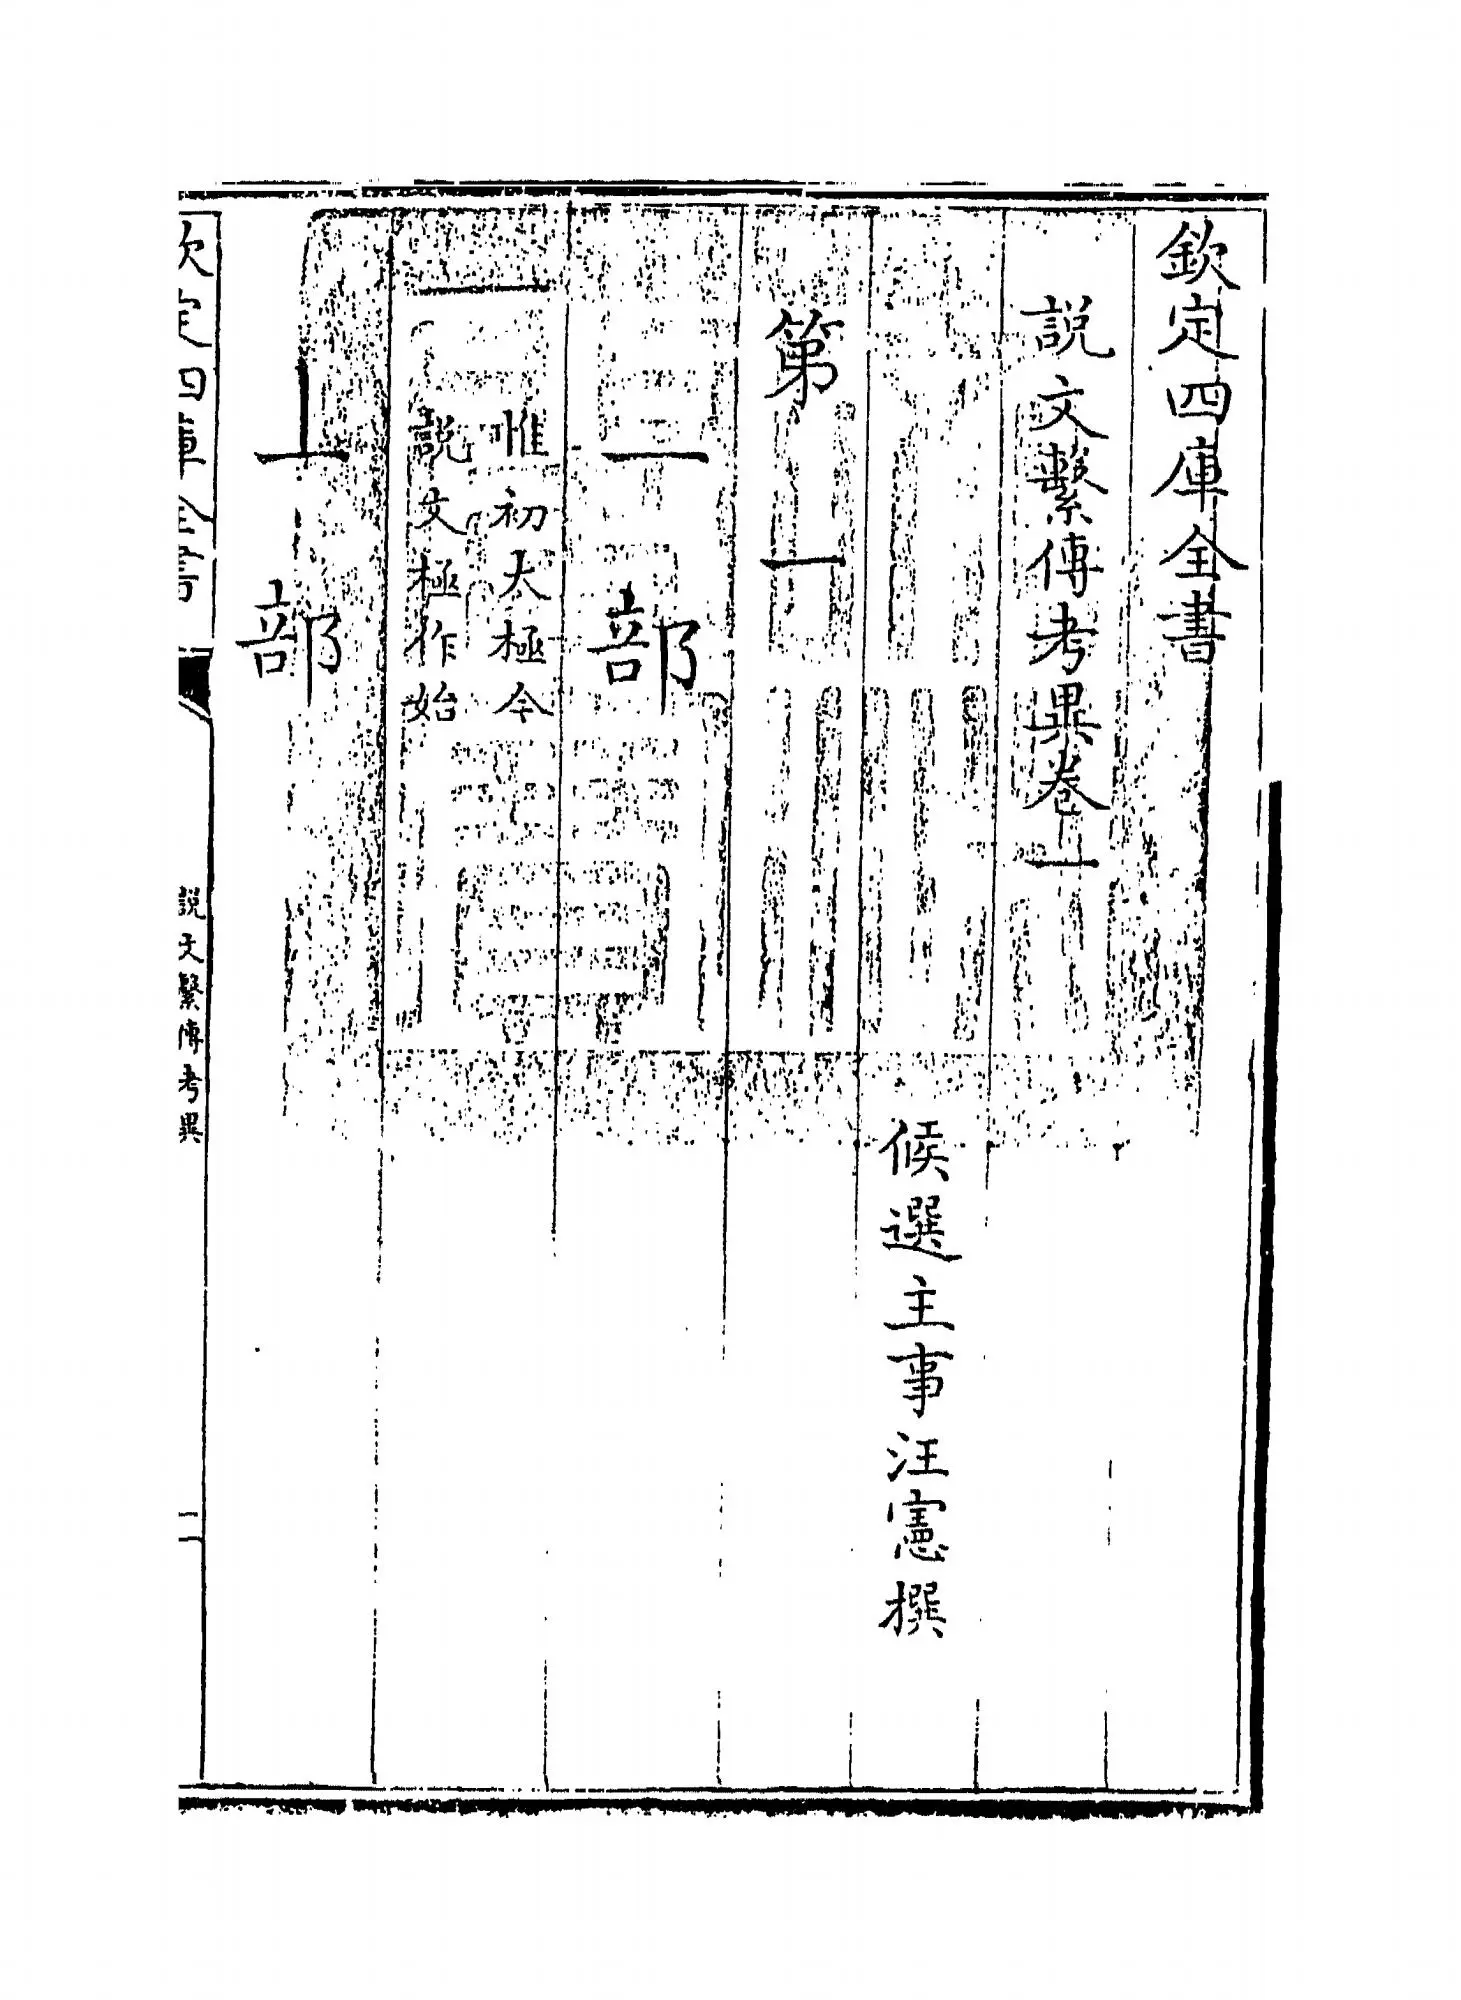 欽定四庫全書
說文繫傳考異卷一
候選主事汪憲撰
第一
一部
一
惟初太極今
說文極作始
丄部
欽定四庫全書
說文繫傳考異